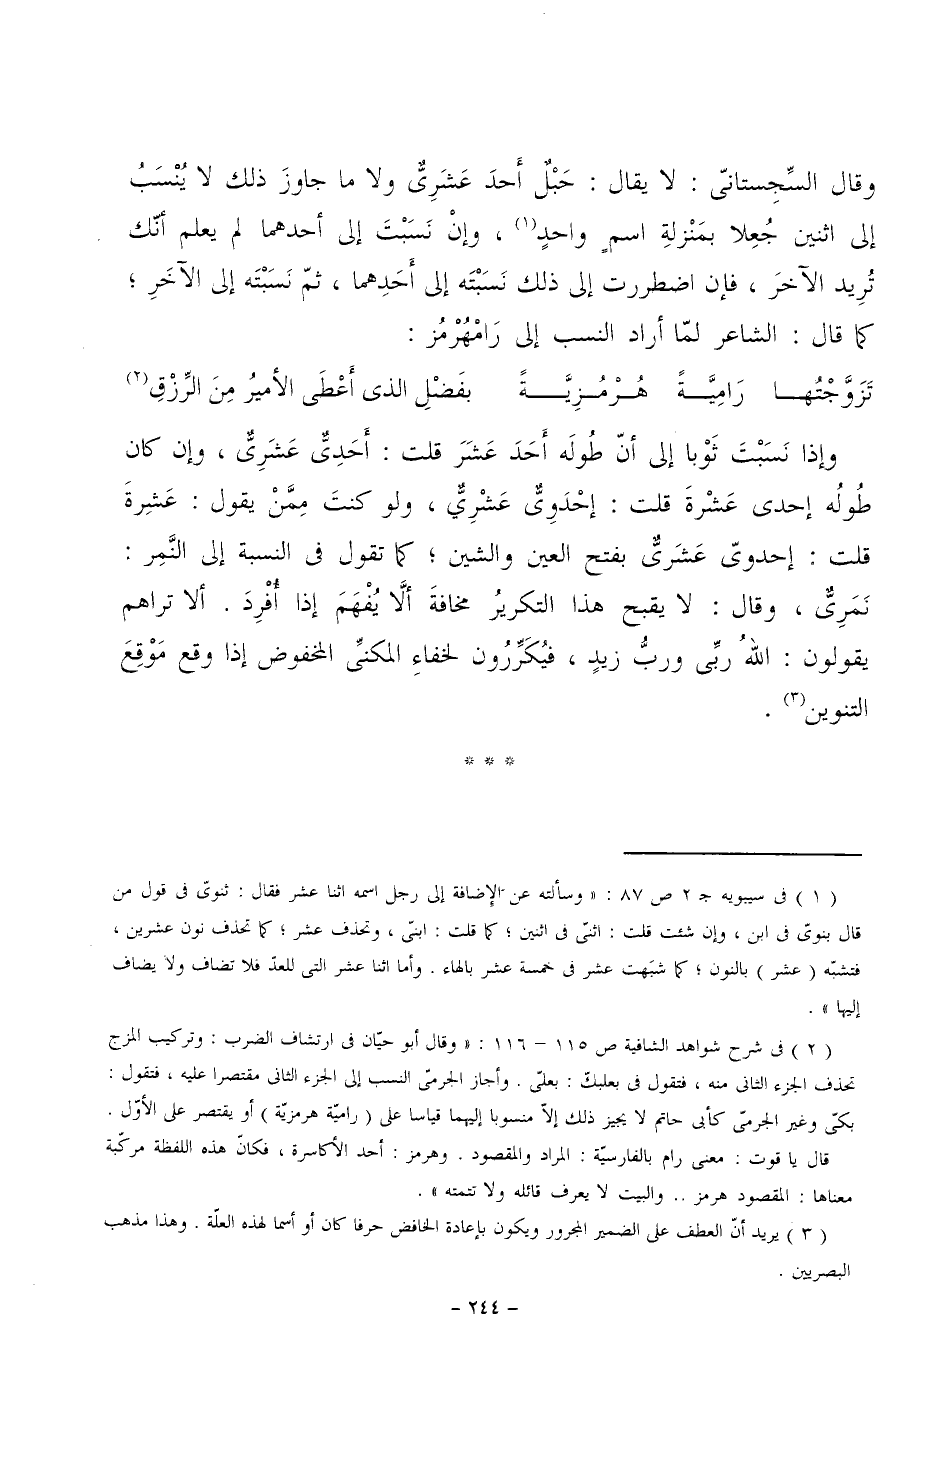 وقال السِّجِستانىّ : لا يقال : حَبْلٌ أَحدَ عَشَرِىٌّ ولا ما جاوزَ ذلك لا يُنْسَبُ
إلى اثنين جُعِلا بمَنْزلةِ اسمٍ واحدٍ(١) ، وإنْ نَسَبْتَ إلى أحدهما لم يعلم أنّك
تُريد الآخرَ ، فإن اضطررت إلى ذلك نَسَبْتَه إلى أَحَدِهما ، ثمّ نَسَبْتَه إلى الآخَرِ ؛
كما قال : الشاعر لمّا أراد النسب إلى رَامْهُرْمُز :
تَزَوَّجْتُهــا رَامِيَّــةً هُــرْمُــزِيَّــةً بفَضْلِ الذى أَعْطَى الأميرُ مِنَ الرِّزْقِ(٢)
وإذا نَسَبْتَ ثَوْبا إلى أنّ طُولَه أَحَدَ عَشَرَ قلت : أَحَدِىٌّ عَشَرِىٌّ ، وإن كان
طُولُه إحدى عَشْرةَ قلت : إحْدَوِىٌّ عَشْرِيٌّ ، ولو كنتَ مِمَّنْ يقول : عَشِرةَ
قلت : إحدوىّ عَشَرِىٌّ بفتح العين والشين ؛ كما تقول فى النسبة إلى النَّمِر :
نَمَرِىٌّ ، وقال : لا يقبح هذا التكريرُ مخافةَ أَلَّا يُفْهَمَ إذا أُفْرِدَ . ألا تراهم
يقولون : اللهُ ربِّى وربُّ زيدٍ ، فيُكَرِّرُون لخفاءِ المكنىِّ المخفوض إذا وقع مَوْقِعَ
التنوين(٣) .
* * *
( ١ ) فى سيبويه جـ ٢ ص ٨٧ : « وسألته عن الإضافة إلى رجل اسمه اثنا عشر فقال : ثنوىّ فى قول من
قال بنوىّ فى ابن ، وإن شئت قلت : اثنىّ فى اثنين ؛ كما قلت : ابنىّ ، وتحذف عشر ؛ كما تحذف نون عشرين ،
فتشبّه ( عشر ) بالنون ؛ كما شبّهت عشر فى خمسة عشر بالهاء . وأما اثنا عشر التى للعدّ فلا تضاف ولا يضاف
إليها » .
( ٢ ) فى شرح شواهد الشافية ص ١١٥ – ١١٦ : « وقال أبو حيّان فى ارتشاف الضرب : وتركيب المزج
تحذف الجزء الثانى منه ، فتقول فى بعلبكّ : بعلىّ . وأجاز الجرمىّ النسب إلى الجزء الثانى مقتصرا عليه ، فتقول :
بكىّ وغير الجرمىّ كأبى حاتم لا يجيز ذلك إلاّ منسوبا إليهما قياسا على ( راميّة هرمزيّة ) أو يقتصر على الأوّل .
قال يا قوت : معنى رام بالفارسيّة : المراد والمقصود . وهرمز : أحد الأكاسرة ، فكانّ هذه اللفظة مركّبة
معناها : المقصود هرمز .. والبيت لا يعرف قائله ولا تتمته » .
( ٣ ) يريد أنّ العطف على الضمير المجرور ويكون بإعادة الخافض حرفا كان أو أسما لهذه العلّة . وهذا مذهب
البصريين .
– ٢٤٤ –